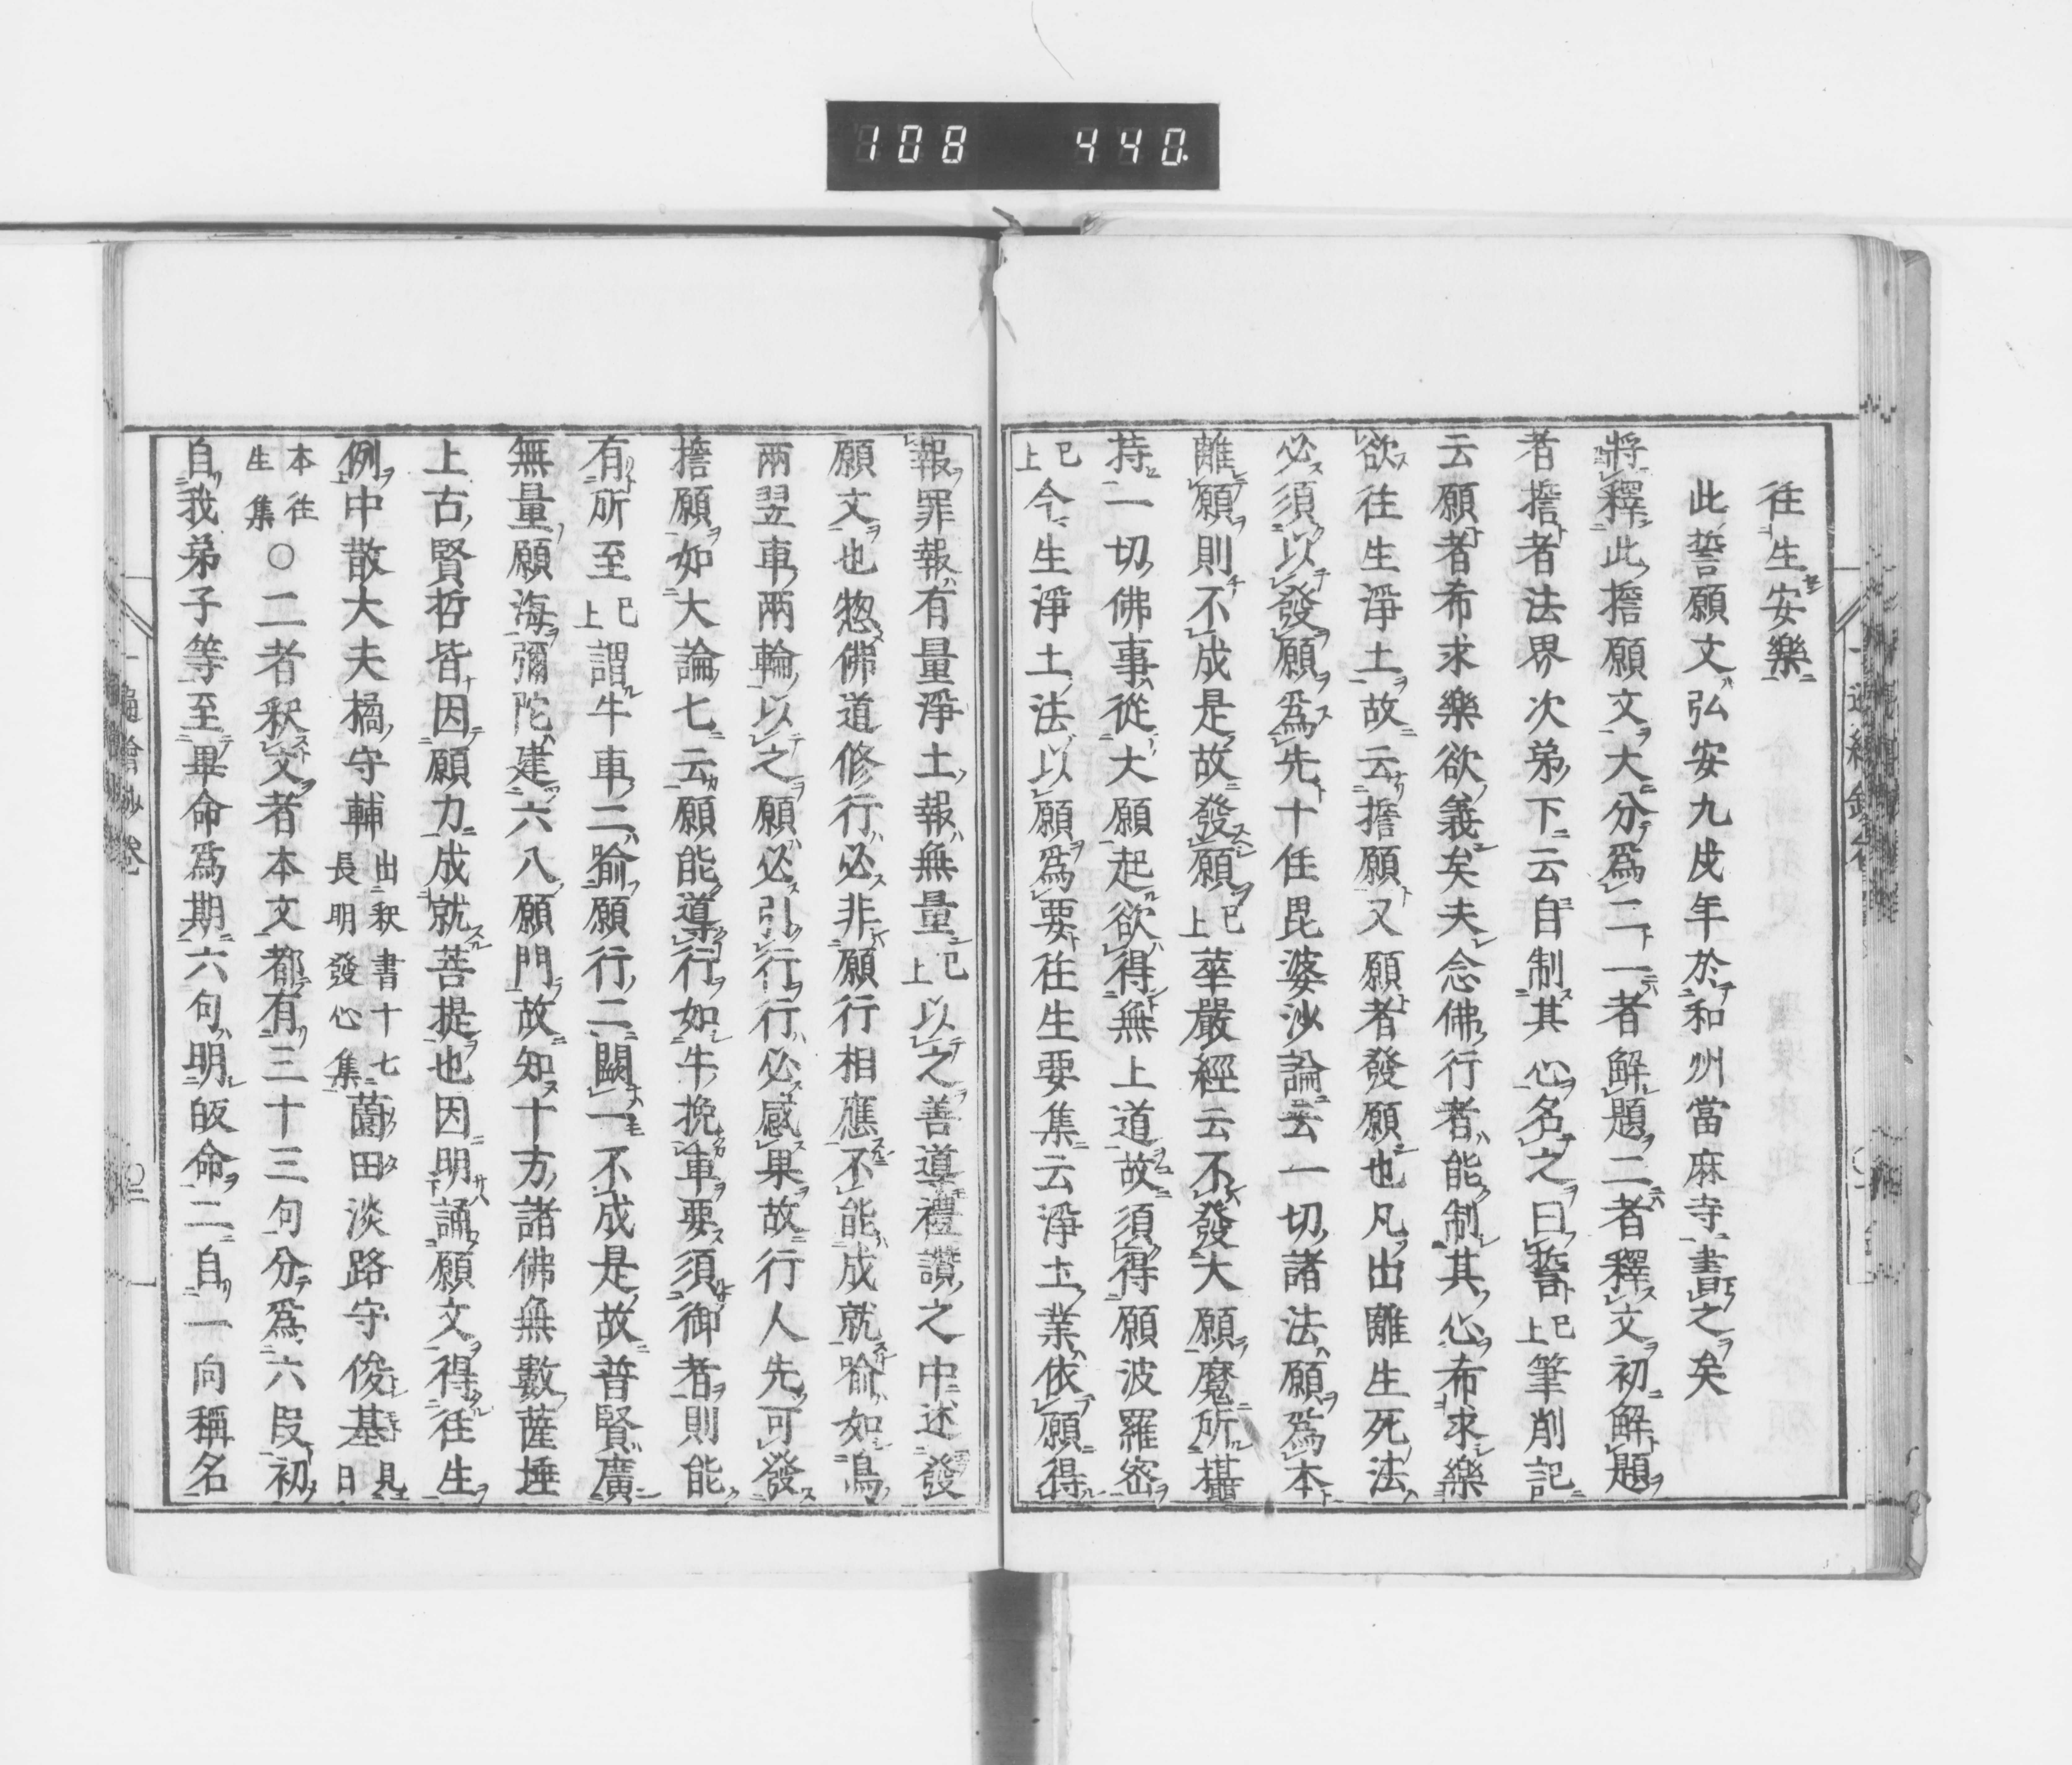 108 440
往生安樂
此誓願文弘安九戌年於和州當麻寺書之矣
將釋此擔願文大分爲二一者解題二者釋文初解題
者擔者法界次第下云自制其心名之曰誓已上筆削記
云願者希求樂欲義矣夫念佛行者能制其心布求樂
欲往生淨土故云擔願又願者發願也凡出離生死法
必須以發願爲先十住毘婆沙論云一切諸法願爲本
離願則不成是故發願已上華嚴經云不發大願魔所攝
持一切佛事從大願起欲得無上道故須得願波羅密
已上今生淨土法以願爲要往生要集云淨土業依願得
報罪報有量淨土報無量已上以之善導禮讚之中述發
願文也惣佛道修行必非願行相應不能成就喻如鳥
兩翌車兩輪以之願必引行行必感果故行人先可發
擔願如大論七云願能導行如牛挽車要須御者則能
有所至已上謂牛車二喻願行二闕一不成是故普賢廣
無量願海彌陀建六八願門故知十方諸佛無數薩埵
上古賢哲皆因願力成就菩提也因明誦願文得往生
例中散大夫橘守輔出釈書十七長明發心集蘭田淡路守俊基見日
本往生集○二者釈文者本文都有三十三句分爲六段初
自我弟子等至畢命爲期六句明皈命二自一向稱名